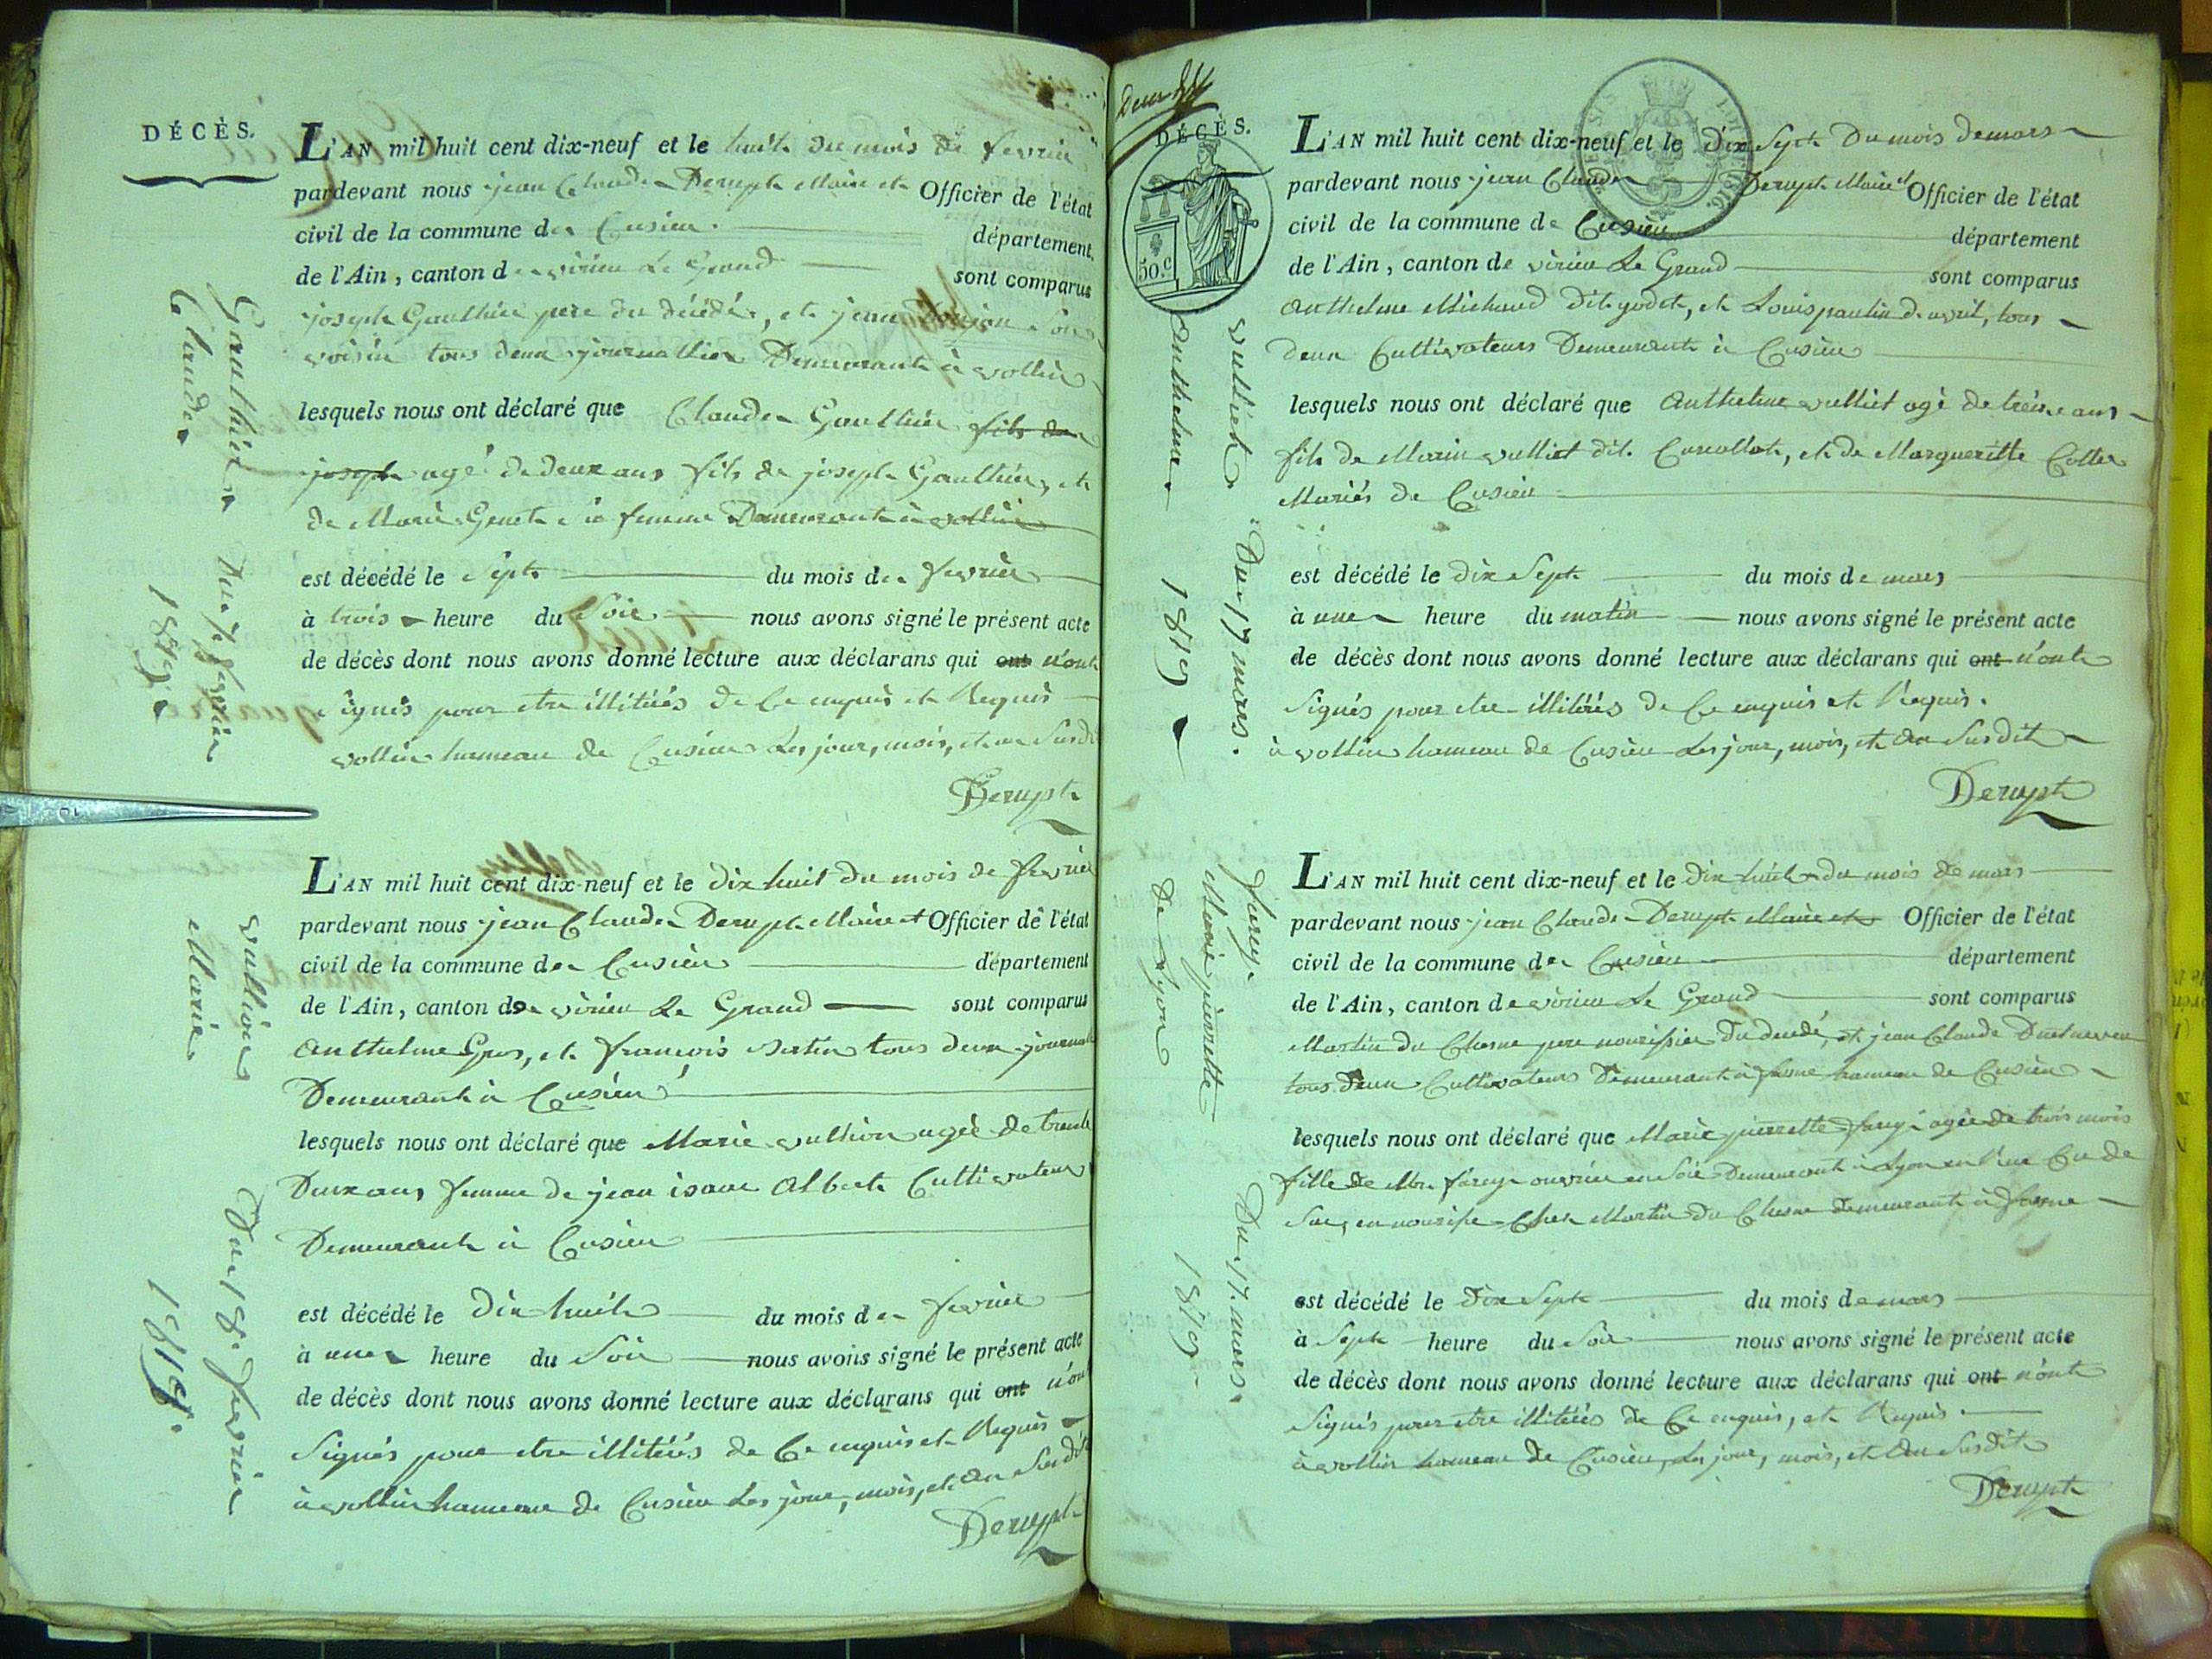 DÉCÈS.
L'AN mil huit cent dix-neuf et le huit du mois de fevrier
pardevant nous jean Claude Derupt Maire et Officier de l'état
civil de la commune de Cusieu département
de l'Ain, canton de virieu Le Grand sont comparus
joseph Gaulthier pere du décédé, et jean son
voisin tous deux journallier Demeurants à vollien
lesquels nous ont déclaré que Claude Gaulthier fils de
joseph agé de deux ans fils de joseph Gaulthier, et
de Marie Genet sa femme Demeurants à vollien
est décédé le Sept du mois de fevrier
à trois heure du Soir nous avons signé le présent acte
de décès dont nous avons donné lecture aux déclarans qui ont n'ont
signés pour etre illitérés de Ce enquis et Requis
vollien hameau de Cusieu Les jour, mois, et an Susdit
Derupt
Gaulthier
Claude
Du 7 fevrier
1819
L'AN mil huit cent dix-neuf et le dix huit du mois de fevrier
pardevant nous jean Claude Derupt Maire et Officier de l'état
civil de la commune de Cusieu département
de l'Ain, canton de virieu Le Grand sont comparus
Anthelme Gros, et francois tous deux
Demeurants à Cusieu
lesquels nous ont déclaré que Marie vullion agée de trente
Deux ans femme de jean isaac Albert Cultivateur
Demeurants à Cusieu
est décédé le Dix huit du mois de fevrier
à une heure du Soir nous avons signé le présent acte
de décès dont nous avons donné lecture aux déclarans qui ont n'ont
Signés pour etre illitérés de Ce enquis et Requis
à vollien hameau de Cusieu Les jour, mois, et an Susdit
Derupt
vullion
Marie
Du 18 fevrier
1819.
DÉCÈS.
50.c
L'AN mil huit cent dix-neuf et le Dix Sept Du mois de mars
pardevant nous jean Claude Derupt Maire et Officier de l'état
civil de la commune de Cusieu département
de l'Ain, canton de virieu Le Grand sont comparus
Anthelme Michaud Dit godet, et Louis paulin davril, tous
deux Cultivateurs Demeurants à Cusieu
lesquels nous ont déclaré que Anthelme vulliet agé de treize ans
fils de Marin vulliet dit, et de Margueritte Collet
Mariés de Cusieu
est décédé le Dix Sept du mois de mars
à une heure du matin nous avons signé le présent acte
de décès dont nous avons donné lecture aux déclarans qui ont n'ont
Signés pour etre illitérés de Ce enquis et Requis.
à vollien hameau de Cusieu Les jour, mois, et an Susdit
Derupt
vulliet
Anthelme
Du 17 mars.
1819
L'AN mil huit cent dix-neuf et le Dix huit du mois de mars
pardevant nous jean Claude Derupt Maire et Officier de l'état
civil de la commune de Cusieu département
de l'Ain, canton de virieu Le Grand sont comparus
Martin du Chesne pere nourissier Du et jean Claude
tous deux Cultivateurs Demeurants à hameau de Cusieu
lesquels nous ont déclaré que Marie pierrette agée de trois mois
fille de Mr. ouvrier en Soie Demeurant à Lyon en Rue Cu de
Sac, en nourisse Chez Martin Du Chesne demeurant à
est décédé le Dix Sept du mois de mars
à Sept heure du Soir nous avons signé le présent acte
de décès dont nous avons donné lecture aux déclarans qui ont n'ont
Signés pour etre illitérés de Ce enquis, et Requis.
à vollien hameau de Cusieu, Les jour, mois, et an Susdit
Derupt
Marie pierrette
De Lyon
Du 17. mars.
1819.